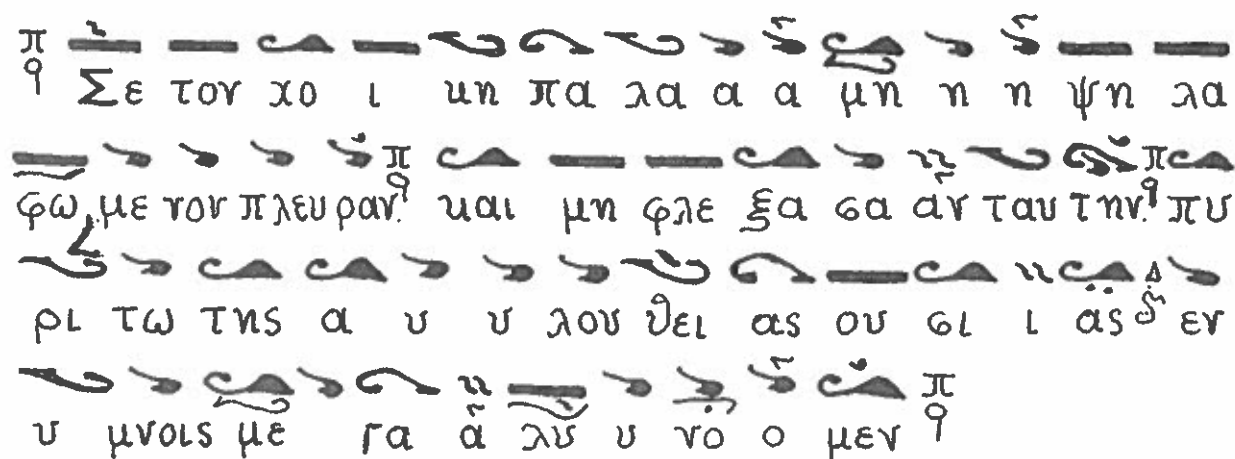 π
q Σε τον χο ι κη πα λα α α μη η η ψη λα
φω με νον πλευ ραν. π q και μη φλε ξα σα αν ταυ την. π q πυ
ρι τω της α υ υ λου θει ας ου σι ι ας Δ εν
υ μνοις με γα α λυ υ νο ο μεν π q